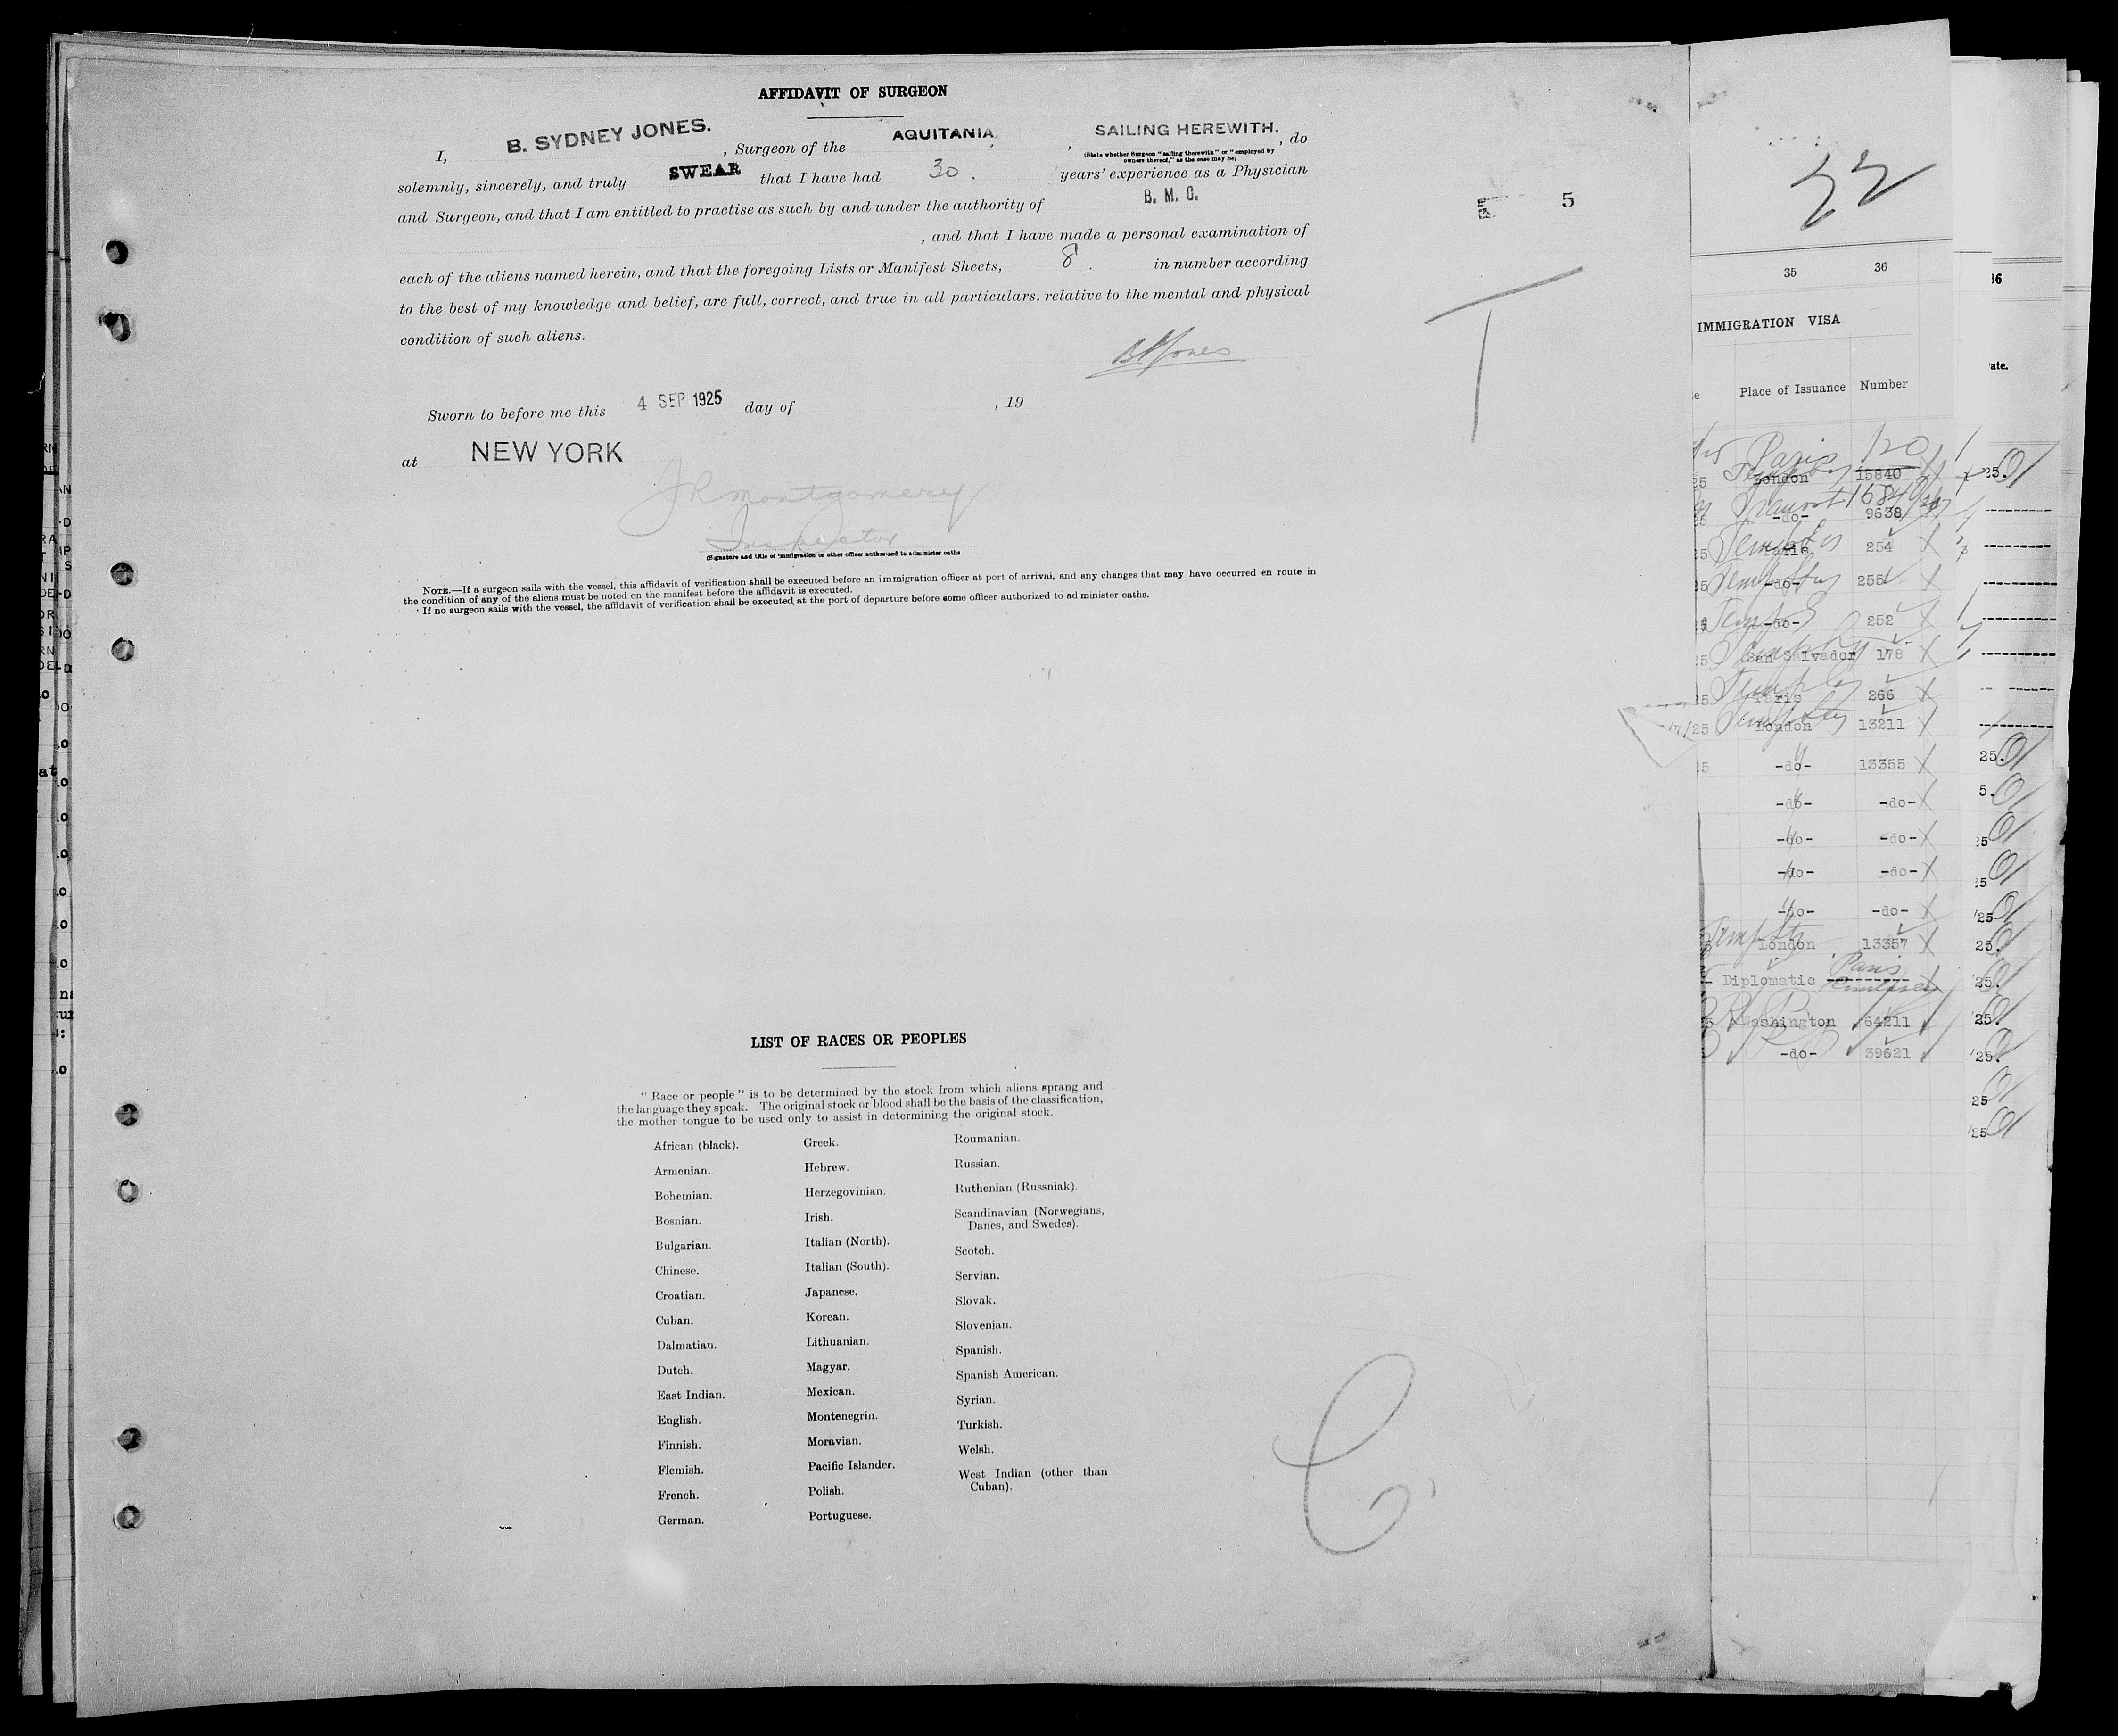 AFFIDAVIT OF SURGEON
I, B. SYDNEY JONES. , Surgeon of the AQUITANIA , SAILING HEREWITH. , do
(State whether Surgeon "sailing therewith" or "employed by
owners thereof," as the case may be)
solemnly, sincerely, and truly SWEAR that I have had 30. years' experience as a Physician
and Surgeon, and that I am entitled to practise as such by and under the authority of B. M. C.
, and that I have made a personal examination of
each of the aliens named herein, and that the foregoing Lists or Manifest Sheets, 8. in number according
to the best of my knowledge and belief, are full, correct, and true in all particulars. relative to the mental and physical
condition of such aliens.
BSJones
Sworn to before me this 4 SEP 1925 day of , 19
at NEW YORK
JRMontgomery
Inspector
(Signature and title of immigration or other officer authorized to administer oaths
NOTE.—If a surgeon sails with the vessel, this affidavit of verification shall be executed before an immigration officer at port of arrival, and any changes that may have occurred en route in
the condition of any of the aliens must be noted on the manifest before the affidavit is executed.
If no surgeon sails with the vessel, the affidavit of verification shall be executed at the port of departure before some officer authorized to administer oaths.
5
T
LIST OF RACES OR PEOPLES
"Race or people" is to be determined by the stock from which aliens sprang and
the language they speak. The original stock or blood shall be the basis of the classification,
the mother tongue to be used only to assist in determining the original stock.
African (black).
Armenian.
Bohemian.
Bosnian.
Bulgarian.
Chinese.
Croatian.
Cuban.
Dalmatian.
Dutch.
East Indian.
English.
Finnish.
Flemish.
French.
German.
Greek.
Hebrew.
Herzegovinian.
Irish.
Italian (North).
Italian (South).
Japanese.
Korean.
Lithuanian.
Magyar.
Mexican.
Montenegrin.
Moravian.
Pacific Islander.
Polish.
Portuguese.
Roumanian.
Russian.
Ruthenian (Russniak).
Scandinavian (Norwegians,
Danes, and Swedes).
Scotch.
Servian.
Slovak.
Slovenian.
Spanish.
Spanish American.
Syrian.
Turkish.
Welsh.
West Indian (other than
Cuban).
C
35 36
IMMIGRATION VISA
Place of Issuance Number
Paris 120
London 15840
-do- 9638
254
-do- 255
-do- 252
San Salvador 178
Paris 266
7/25 London 13211
-do- 13355
-do- -do-
-do- -do-
-do- -do-
-do- -do-
London 13357
Diplomatic Paris
Washington 64211
-do- 39621